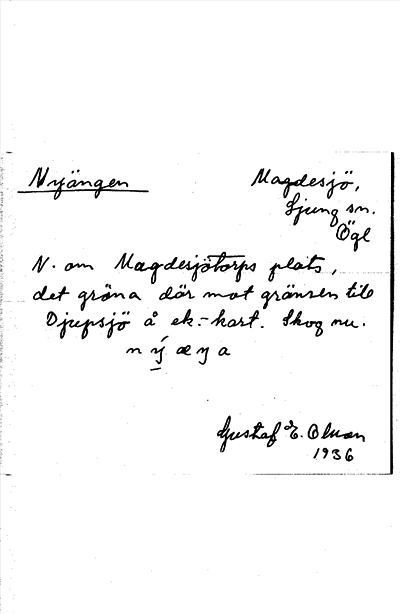 Nyängen
Magdesjö,
Ljung sn.
Ögl
N. om Magdesjötorps plats,
det gröna där mot gränsen till
Djupsjö å ek.-kart. Skog nu.
n ý æ ŋ a
Gustaf E. Olsson
1936